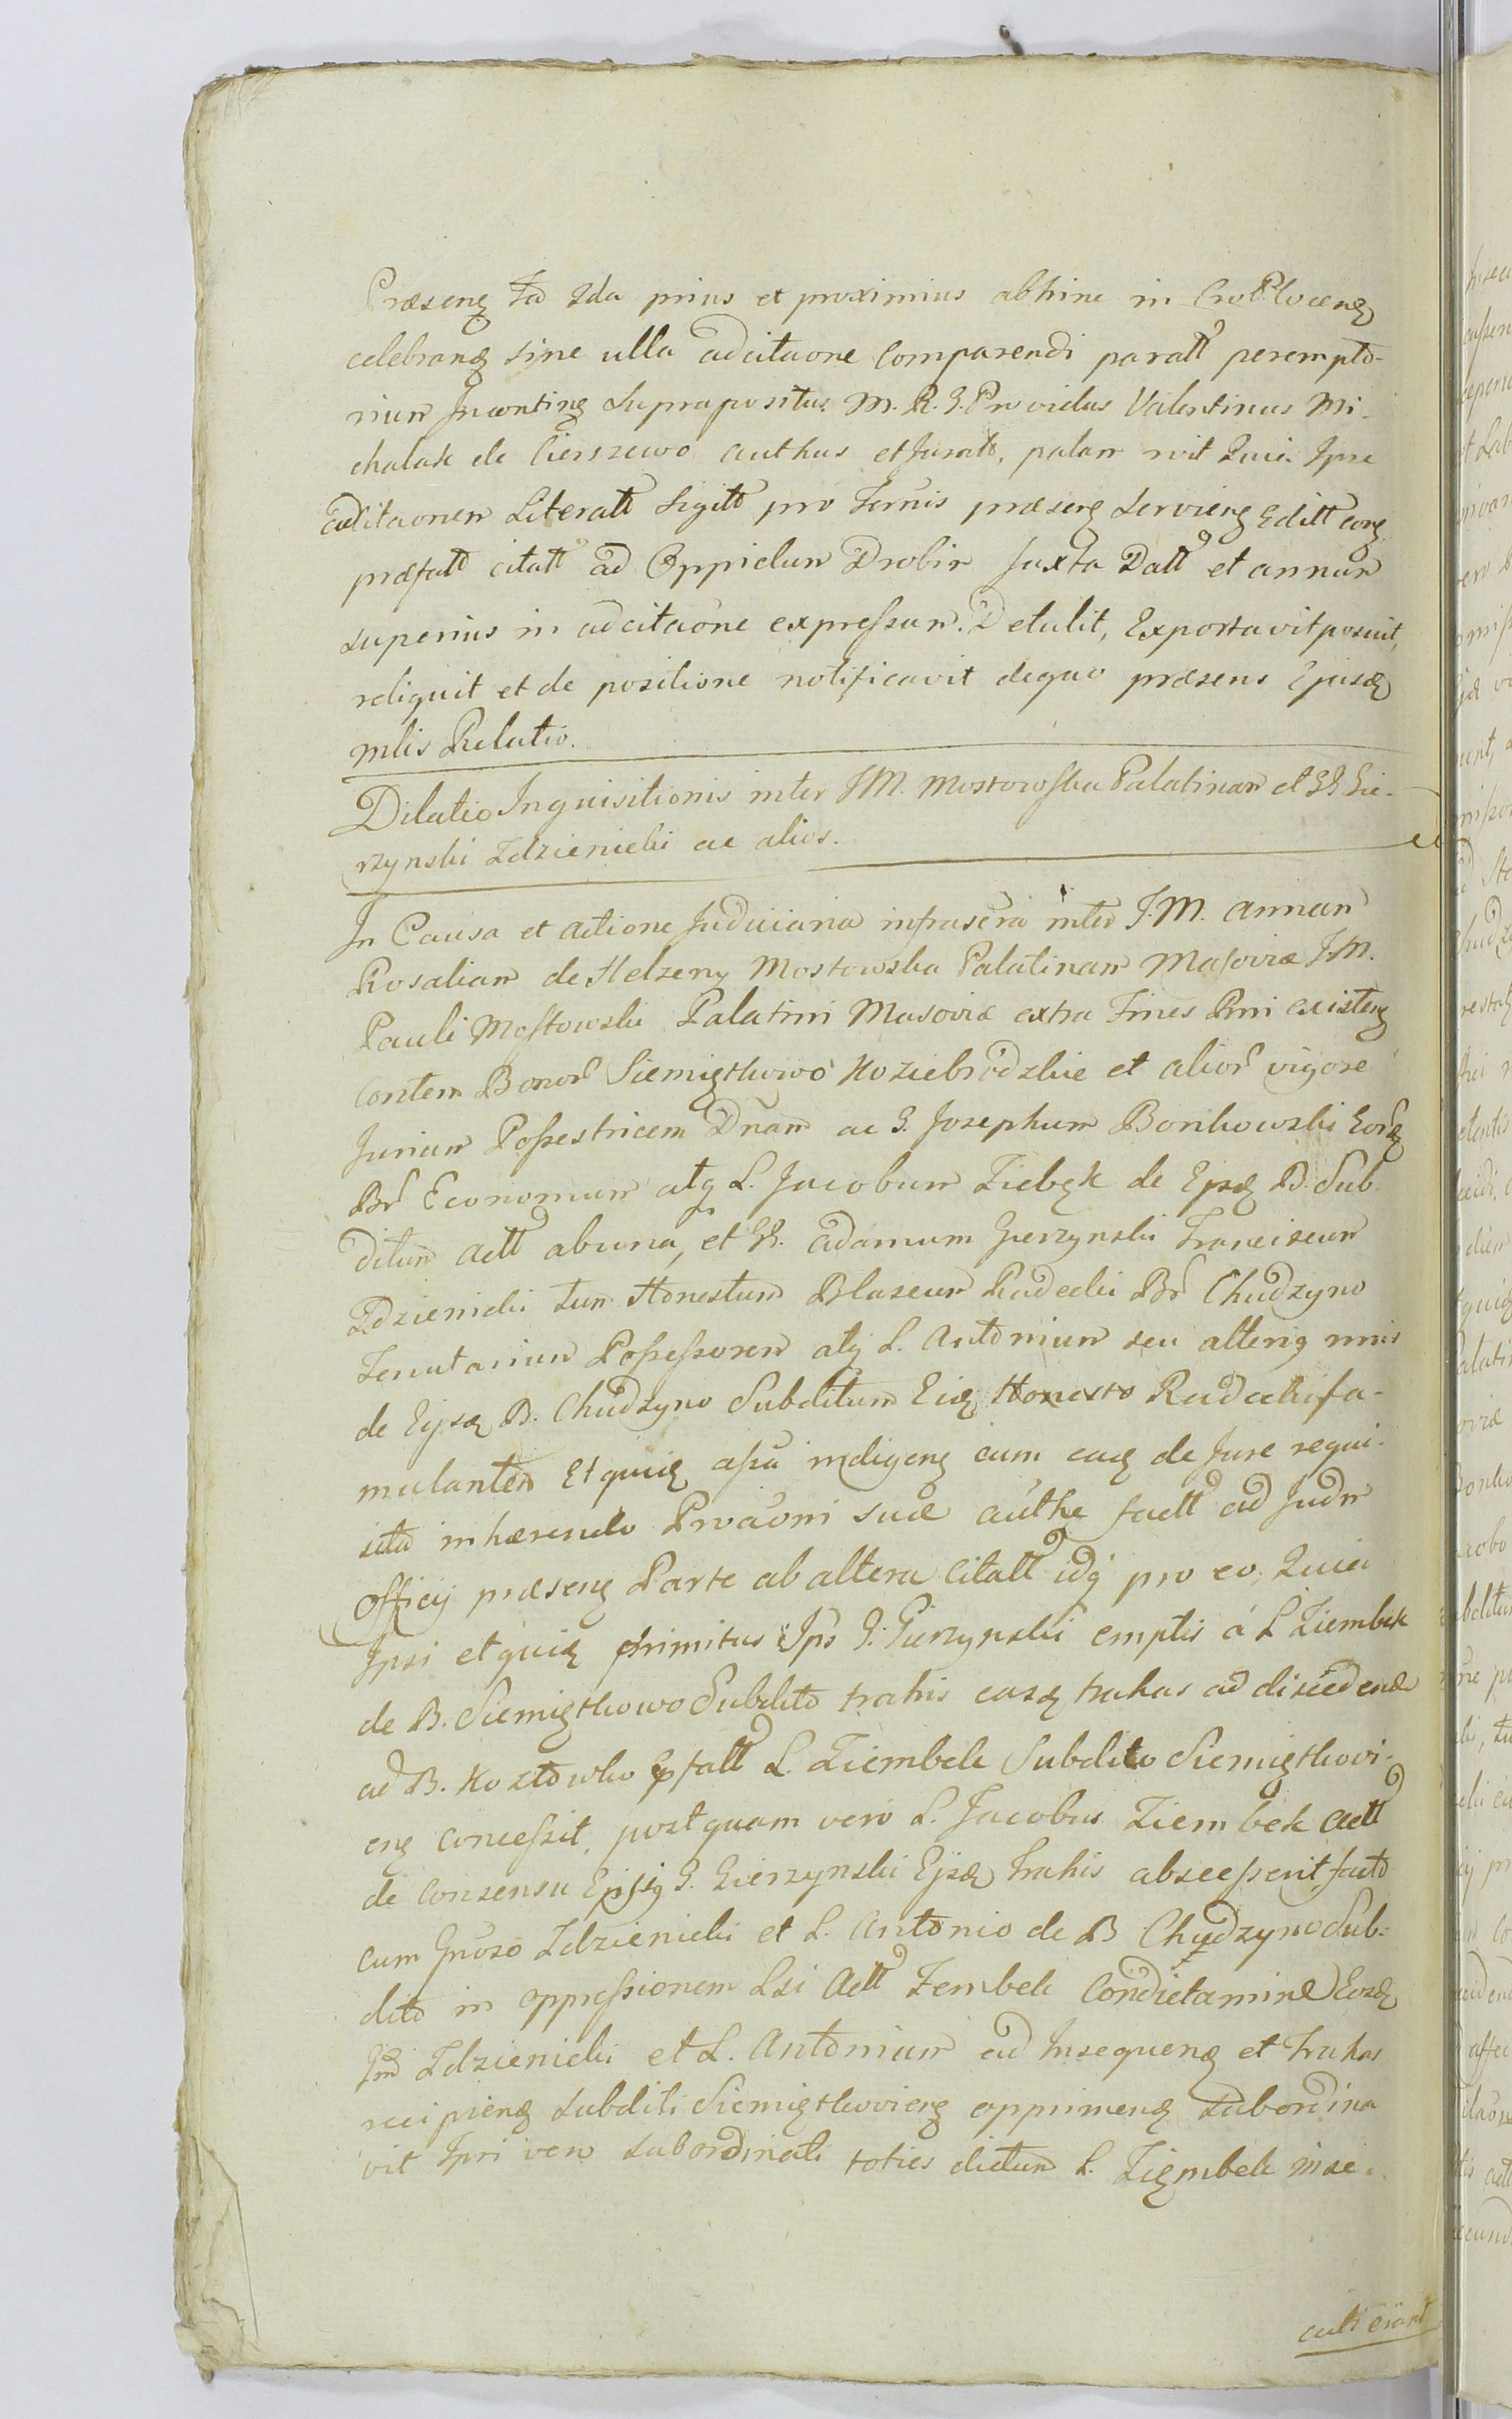 Præsenꝫ Ta Ida prius et proximius abhinc in Cro Plocenꝫ
celebranꝫ sine ulla adcitaone comparendi paratt perempto-
rium Incontinꝫ Suprapositus M. R. G. Providus Valentinus Mi-
chalak de Cierszewo authus et Jurato, palam rvit Quia Ipse
adcitaonem Literatt Sigitt pro Termis præsenꝫ Servienꝫ Editt conꝫ
præfatt citatt ad Oppidum Drobin Juxta Datt et annum
superius in adcitaone expressum. Detulit, Exportavit posuit,
reliquit et de positione notificavit de quo præsens Ejusdꝫ
mlis Relatio.
Dilatio Inquisitionis inter J M. Mostowska Palatinam et G G. Gie-
rzynski Zdzienicki ac alios.
In Causa et actione Judiciaria infrascra inter J. M. Annam
Rosaliam de Helzeny Mostowska Palatinam Masoviæ J M.
Pauli Mostowski Palatini Masoviæ extra Fines Rni existenꝫ
Contem Bonor Siemiętkowo Koziebrodzkie et alior vigore
Jurium Possestricem Dnam ac G. Josephum Bonkowski Eordꝫ
Br Economum atq L. Jacobum Ziębęk de Ejsdꝫ B. Sub-
ditum Actt ab una, et GG. Adamum Gierzynski Franciscum
Zdzienicki tum Honestum Blaseum Radecki Br Chudzyno
Tenutarium Possessorem atq L. Antonium seu alteriq nnis
de Eijsdꝫ B. Chudzyno Subditum Eidꝫ Honesto Radecki fa-
mulantem Et quidꝫ assa indigenꝫ cum eadꝫ de Jure requi-
sita inhærendo Proaoni suæ authe factt ad Judm
Officij præsenꝫ Parte ab altera Citatt idq pro eo, Quia
Ipsi et quidꝫ primitus Ips G. Gierzynski emptis á L Ziembek
de B. Siemiętkowo Subdito trahis easdꝫ trahas ad discedend
ad B. Kozłowko pfatt L. Ziembek Subdito Siemiętkovi-
enꝫ concessit, postquam vero L. Jacobus Ziembek Actt
de consensu Epsiq G. Gierzynski Ejsdꝫ trahis abscesserit, facto
cum Gnoso Zdzienicki et L. Antonio de B Chudzyno Sub-
dito in oppressionem Lsi Actt Zembek Condictamine Eosdꝫ
Gm Zdzienicki et L. Antonium ad Insequenꝫ et trahas
recipienꝫ Subditi Siemiętkovienꝫ opprimenꝫ Subordina
vit Ipsi vero Subordinati toties dictum L. Ziembek inse-